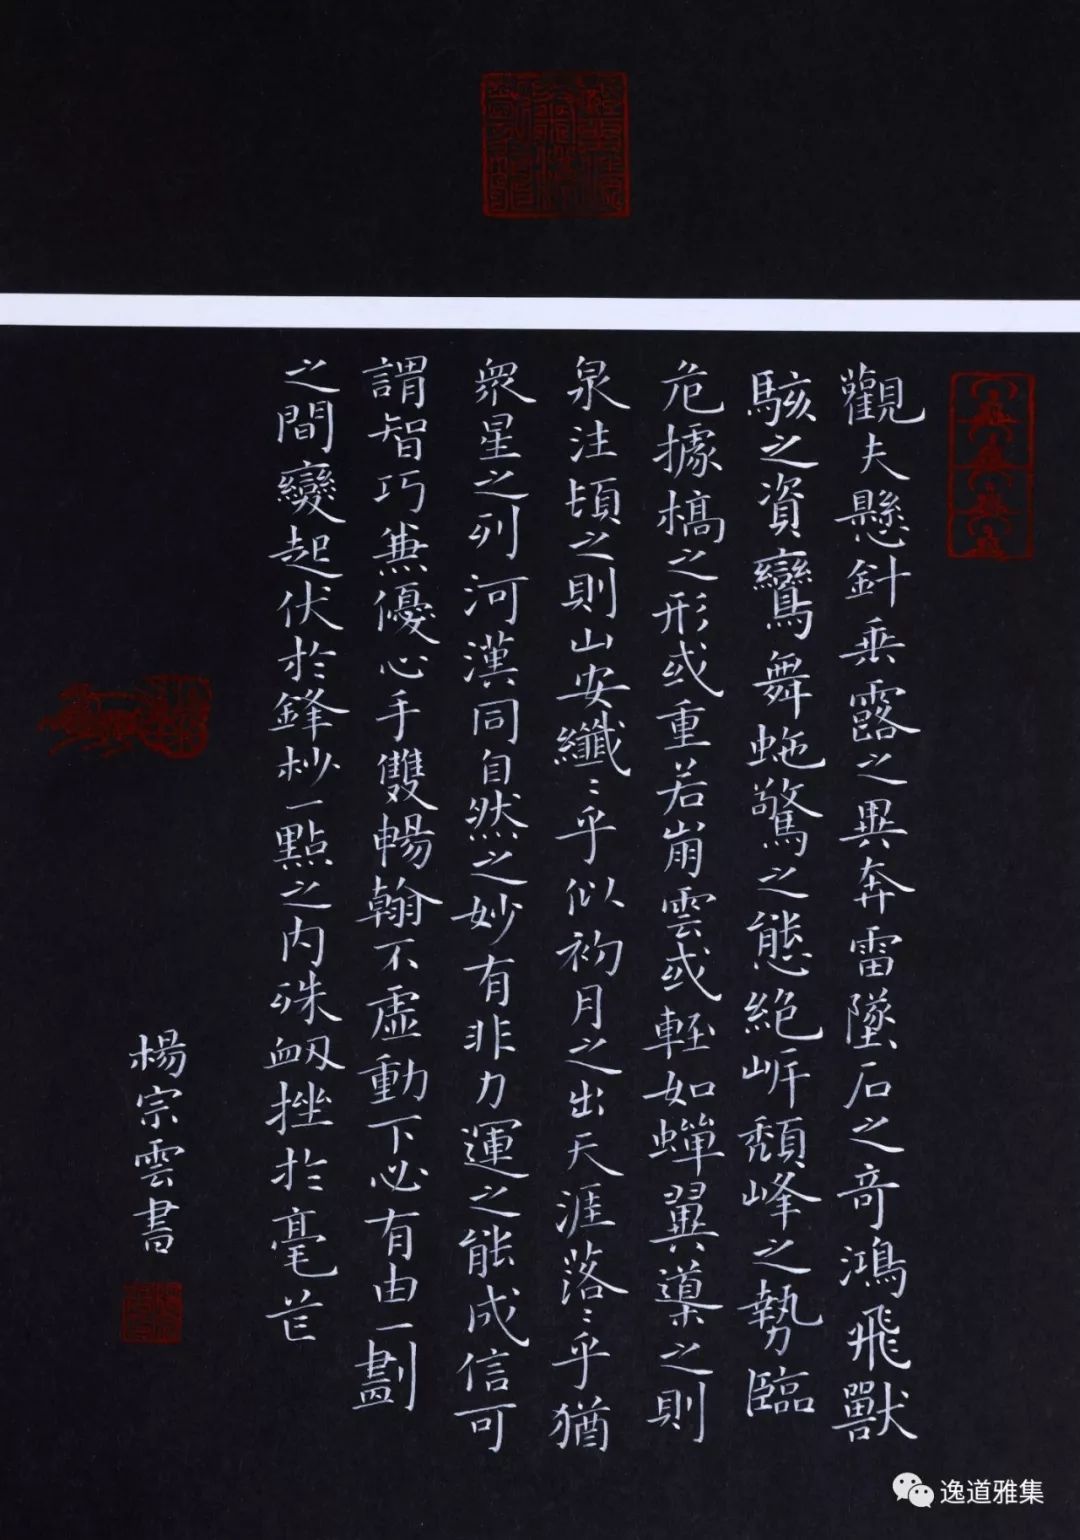 觀夫懸針垂露之異奔雷墜石之奇鴻飛獸
駭之資鸞舞虵驚之態絕岸頹峰之勢臨
危據槁之形或重若崩雲或輕如蟬翼導之則
泉注頓之則山安纖〻乎似初月之出天涯落〻乎猶
衆星之列河漢同自然之妙有非力運之能成信可
謂智巧兼優心手雙暢翰不虛動下必有由一劃
之間變起伏於鋒杪一點之內殊衂挫於毫芒
楊宗雲書
逸道雅集